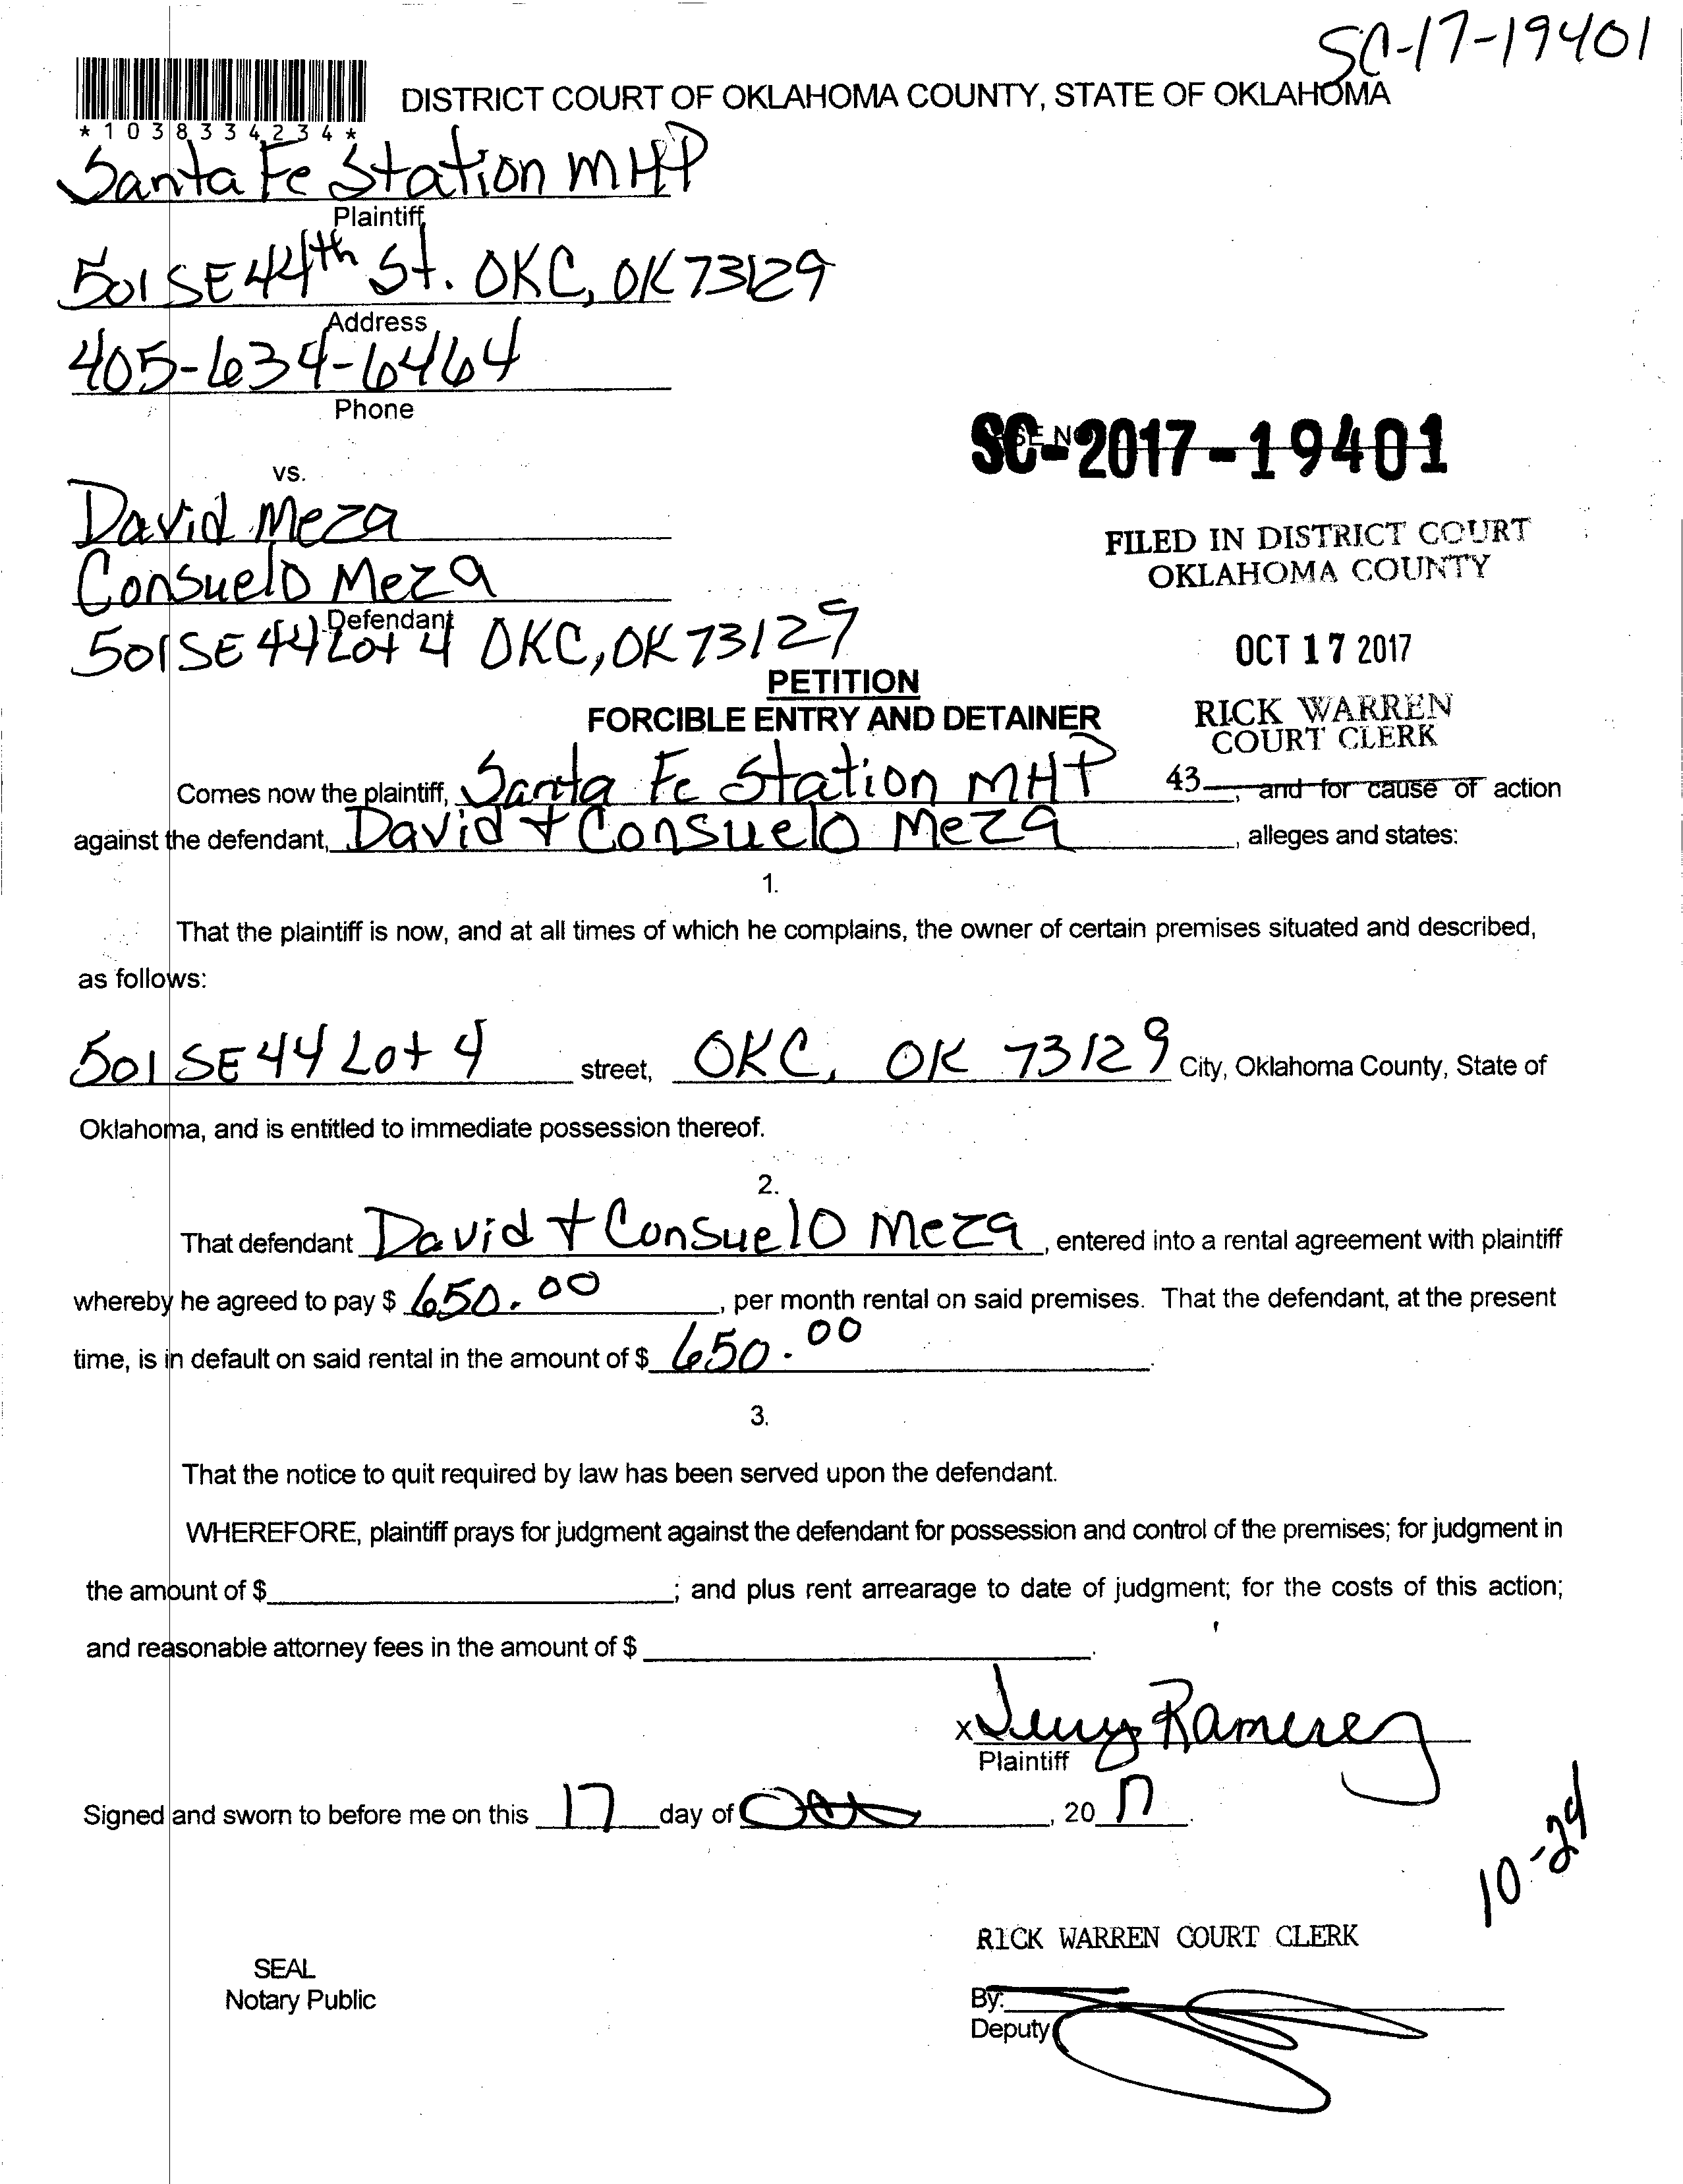 SC-17-19401
DISTRICT COURT OF OKLAHOMA COUNTY, STATE OF OKLAHOMA
*1038334234*
Santa Fe Station MHP
Plaintiff
501 SE 44th St. OKC, OK 73129
Address
405-634-6464
Phone
SC-2017-19401
vs.
David Meza
FILED IN DISTRICT COURT
OKLAHOMA COUNTY
Consuelo Meza
Defendant
501 SE 44 Lot 4 OKC, OK 73129
OCT 17 2017
PETITION
FORCIBLE ENTRY AND DETAINER
RICK WARREN
COURT CLERK
Comes now the plaintiff, Santa Fe Station MHP 43, and for cause of action
against the defendant, David + Consuelo Meza, alleges and states:
1.
That the plaintiff is now, and at all times of which he complains, the owner of certain premises situated and described,
as follows:
501 SE 44 Lot 4 street, OKC, OK 73129 City, Oklahoma County, State of
Oklahoma, and is entitled to immediate possession thereof.
2.
That defendant David + Consuelo Meza, entered into a rental agreement with plaintiff
whereby he agreed to pay $ 650.00, per month rental on said premises. That the defendant, at the present
time, is in default on said rental in the amount of $ 650.00.
3.
That the notice to quit required by law has been served upon the defendant.
WHEREFORE, plaintiff prays for judgment against the defendant for possession and control of the premises; for judgment in
the amount of $ ; and plus rent arrearage to date of judgment; for the costs of this action;
and reasonable attorney fees in the amount of $ .
x Ramirez
Plaintiff
Signed and sworn to before me on this 17 day of Oct, 20 17.
10-24
RICK WARREN COURT CLERK
SEAL
Notary Public
By:
Deputy